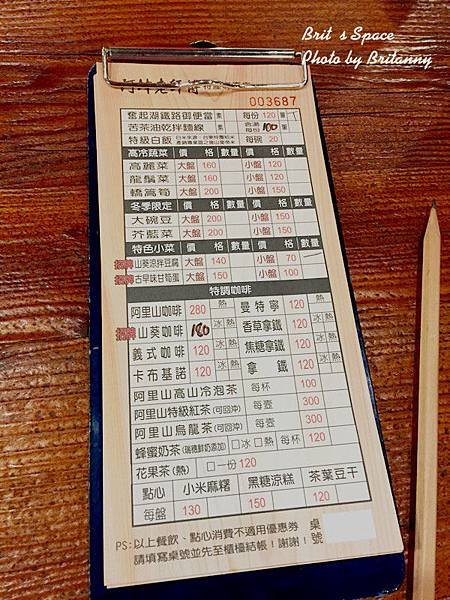 Brit's Space
Photo by Britanny
003687
奮起湖鐵路御便當 素 每份 120 葷
苦茶油乾拌麵線 含湯每份 100 素
特級白飯 每碗 20
高冷蔬菜 價 格 數量 價 格 數量
高麗菜 大盤 160 小盤 120
龍鬚菜 大盤 160 小盤 120
轎篙筍 大盤 200 小盤 150
冬季限定 價 格 數量 價 格 數量
大碗豆 大盤 200 小盤 150
芥藍菜 大盤 200 小盤 150
特色小菜 價 格 數量 價 格 數量
招牌 山葵涼拌豆腐 大盤 140 小盤 70
招牌 古早味甘筍蛋 大盤 150 小盤 100
特調咖啡
阿里山咖啡 280 熱 曼特寧 120 冰 熱
招牌 山葵咖啡 180 冰 熱 香草拿鐵 120 冰 熱
義式咖啡 120 冰 熱 焦糖拿鐵 120 冰 熱
卡布基諾 120 冰 熱 拿鐵 120 冰 熱
阿里山高山冷泡茶 每杯 100
阿里山特級紅茶(可回沖) 每壺 300
阿里山烏龍茶(可回沖) 每壺 300
蜂蜜奶茶(瑞穗鮮奶添加) □冰 □熱 每杯 120
花果茶(熱) □一份 120
點心 小米麻糬 黑糖涼糕 茶葉豆干
每盤 130 150 120
PS:以上餐飲、點心消費不適用優惠券 桌號
請填寫桌號並先至櫃檯結帳!謝謝!